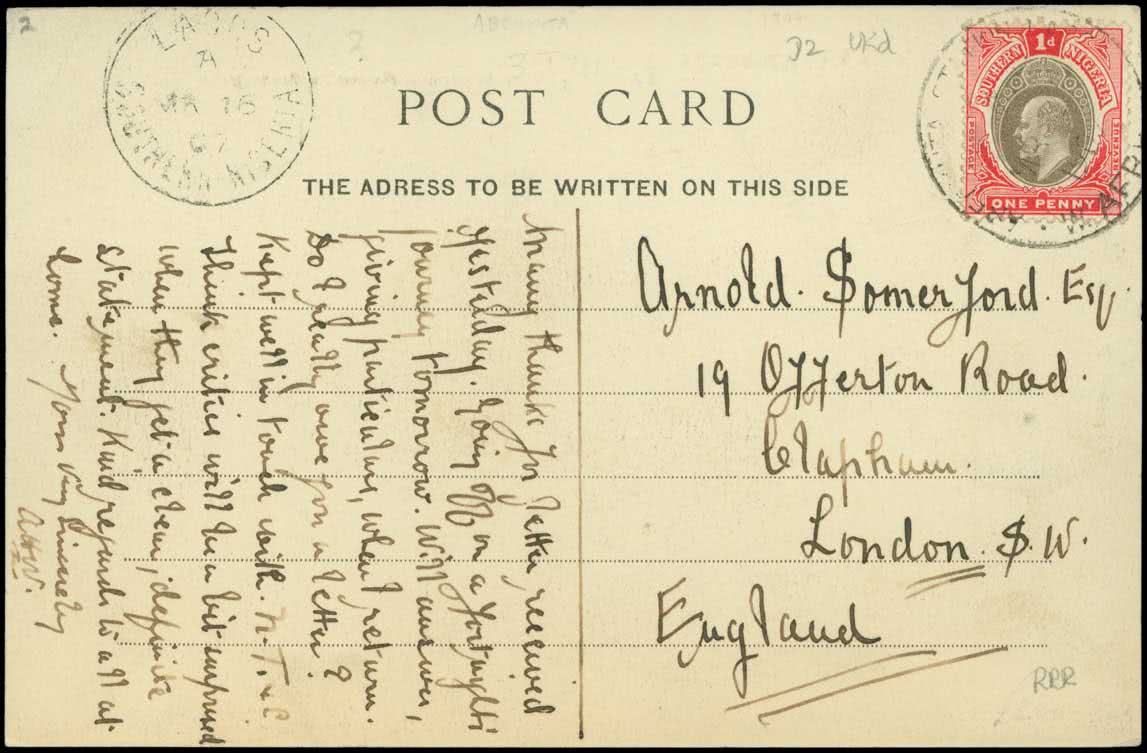 2
LAGOS
A
MR 16
07
SOUTHERN NIGERIA
D2 UKd
POST CARD
THE ADRESS TO BE WRITTEN ON THIS SIDE
SOUTHERN NIGERIA
1d
POSTAGE
ONE PENNY
Many thanks for letter received
yesterday. Going off on a fortnight's
journey tomorrow. Will answer,
giving particulars, when I return.
Do I really owe you a letter?
Kept well in touch with N.T. & C
Think critics will be a bit
when they get a clear, definite
statement. Kind regards to all at
home. Yours very sincerely
Arnold. Somerford. Esq.
19 Offerton Road.
Clapham.
London. S.W.
England
RRR